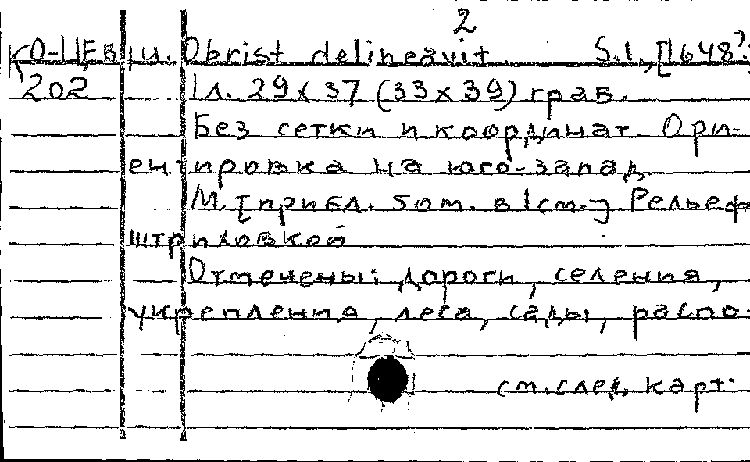 2
КО-ЦЕВ/ и. Obrist delineavit S.l., [1648?.
202 1 л. 29 х 37 (33 х 39) грав.
Без сетки и координат. Ори-
ентировка на юго-запад.
М. [прибл. 50 m. в 1 см.] Рельеф
штриховкой
Отмечены: дороги, селения,
укрепления, леса, сады, распо-
см. след. карт.